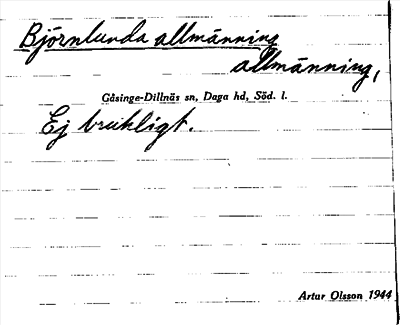 Björnlunda allmänning
allmänning,
Gåsinge-Dillnäs sn, Daga hd, Söd. l.
Ej brukligt.
Artur Olsson 1944